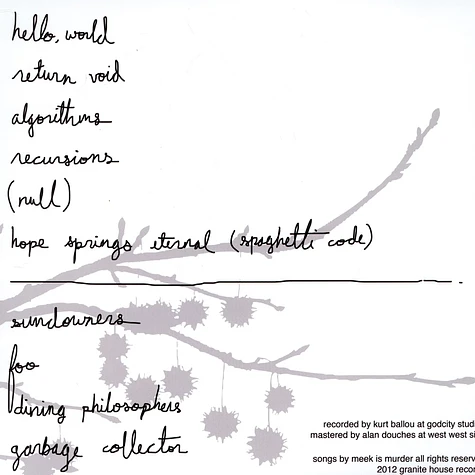 hello, world
return void
algorithms
recursions
(null)
hope springs eternal (spaghetti code)
sundowners
foo
dining philosophers
garbage collector
recorded by kurt ballou at godcity stud
mastered by alan douches at west west si
songs by meek is murder all rights reserv
2012 granite house recor